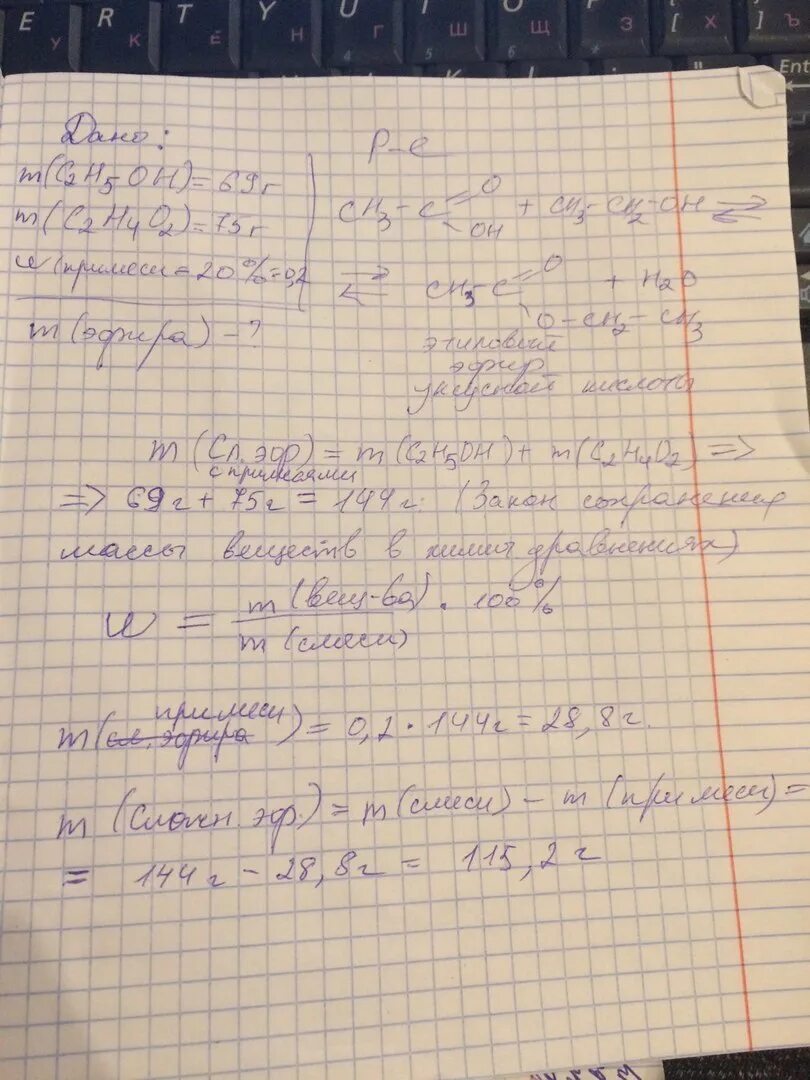 E R T Y U I O P
У К Е Н Г Ш Щ З [ Х ] Ъ
Ent
Дано:
m(C2H5OH)=69г
m(C2H4O2)=75г
w(примеси=20%=0,2
m(эфира)-?
Р-е
CH3-C=O OH + CH3-CH2-OH ⇄
⇄ CH3-C=O O-CH2-CH3 + H2O
этиловый
эфир
уксусной кислоты
m (Сл. эфр) = m(C2H5OH) + m(C2H4O2) =>
с примесями
=> 69г + 75г = 144г. (Закон сохранения
массы веществ в химич уравнениях)
w = m(вещ-ва) / m(смеси) · 100%
примеси
m(сл. эфира) = 0,2 · 144г = 28,8г.
m (Сложн. эфр.) = m(смеси) - m (примеси) =
= 144г - 28,8г = 115,2г